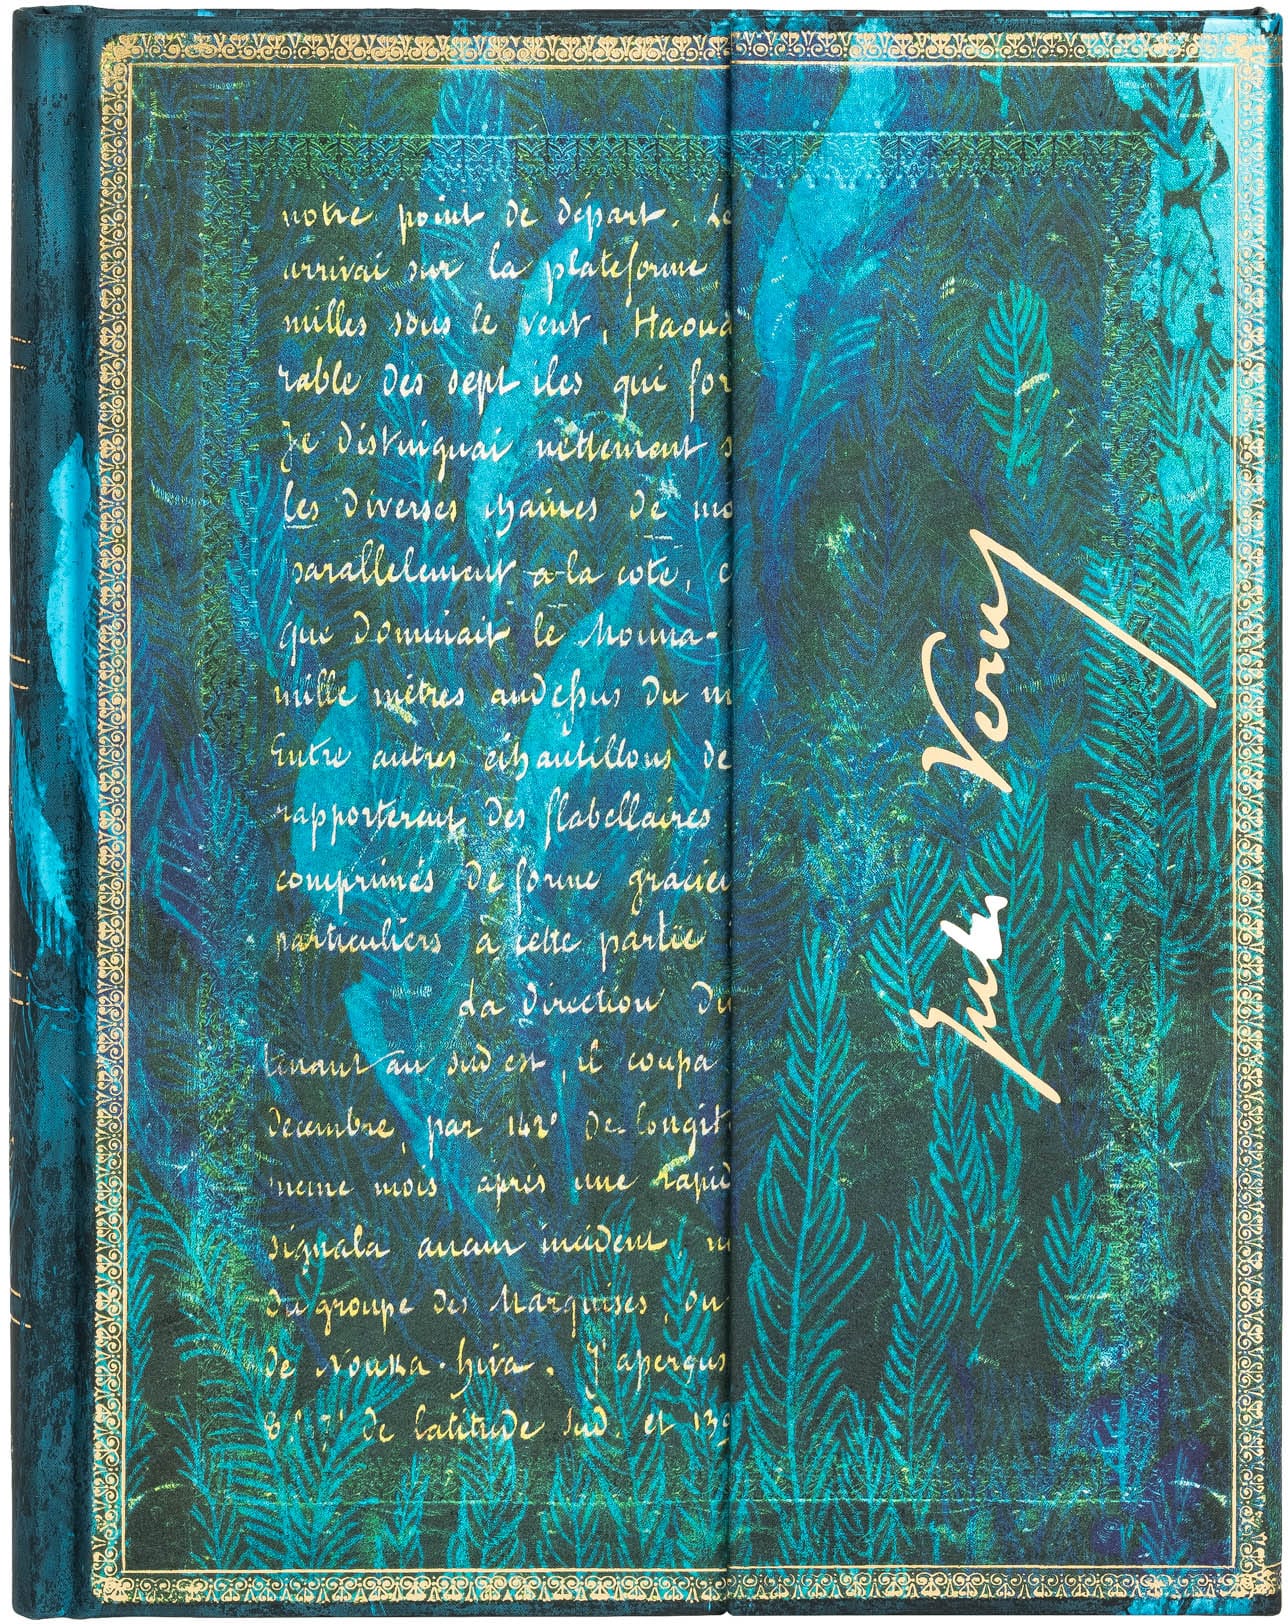 notre point de départ. Le
arrivai sur la plateforme
milles sous le vent, Haoua
rable des sept iles qui for
Je distinguai nettement s
les diverses chaines de mo
parallelement a la cote, c
que dominait le Mouna-
mille mètres audessus du m
Entre autres échantillons de
rapporterent des flabellaires
comprimés de forme gracieu
particuliers à cette partie
La direction du
tenant au sud est, il coupa
Décembre, par 142° de longit
meme mois après une rapid
signala aucun incident, n
du groupe des Marquises, ou
de Nouka-hiva. J'aperçus
de latitude sud. et 139
Jules Verne